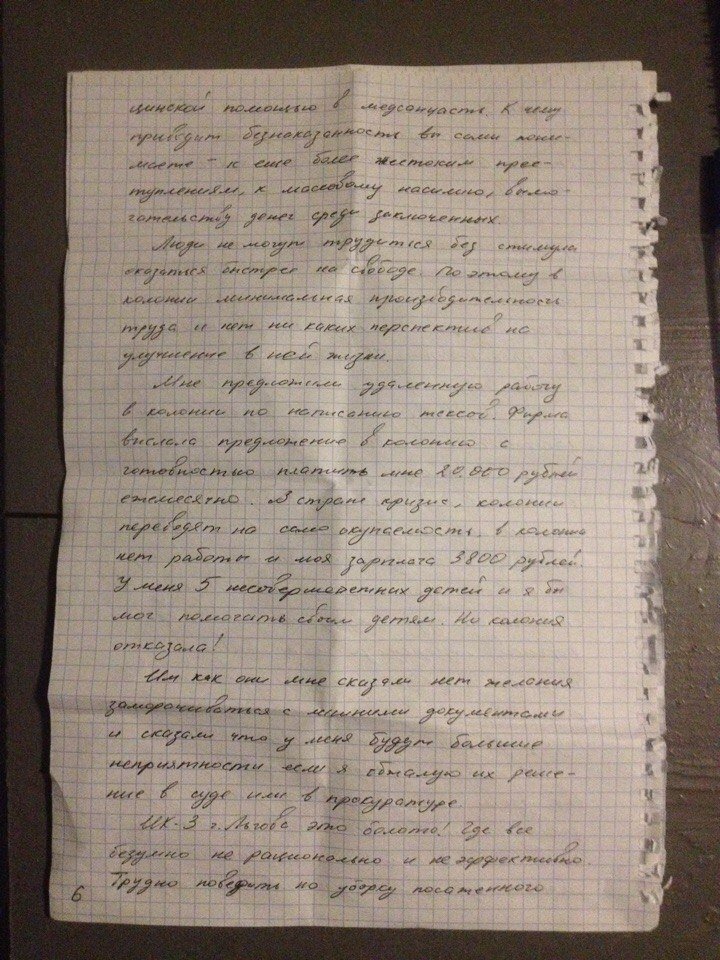 цинской помощью в медсанчасть. К чему
приводит безнаказанность вы сами пони-
маете - к еще более жестоким прес-
туплениям, к массовому насилию, вымо-
гательству денег среди заключенных.
Люди не могут трудиться без стимула
оказаться быстрее на свободе. Поэтому в
колонии минимальная производительность
труда и нет ни каких перспектив на
улучшение в ней жизни.
Мне предложили удаленную работу
в колонии по написанию тексов. Фирма
выслала предложение в колонию с
готовностью платить мне 20.000 рублей
ежемесячно. В стране кризис, колонии
переводят на само окупаемость, в колонии
нет работы и моя зарплата 3800 рублей.
У меня 5 несовершеннолетних детей и я бы
мог помогать своим детям. Но колония
отказала!
Им как они мне сказали нет желания
заморачиваться с лишними документами
и сказали что у меня будут большие
неприятности если я обжалую их реше-
ние в суде или в прокуратуре.
ИК-3 г. Льгова это болото! Где все
безумно не рационально и не эффективно.
Трудно поверить но уборку посаженного
6